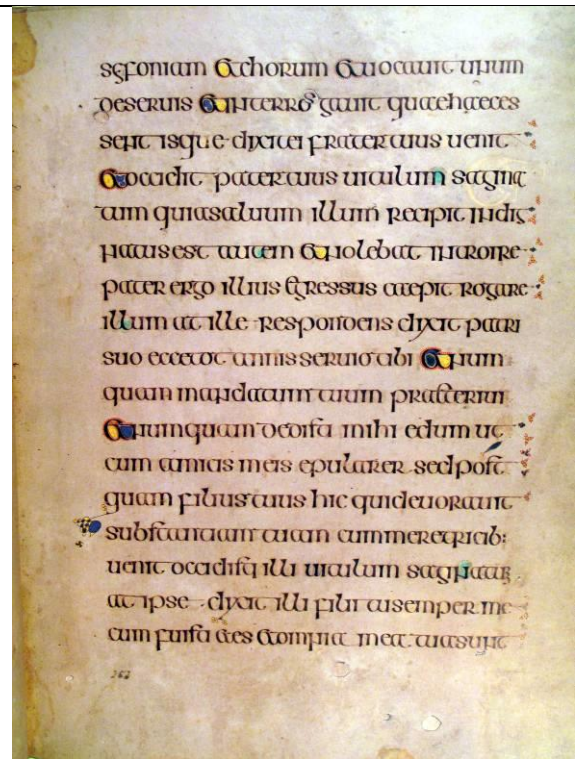 sefoniam & chorum & uocauit unum
deseruis & interrogauit quaehaeces
sent isque dixitei frater tuus uenit
& occidit pater tuus uitulum sagina
tum quiasaluum illum recipit indig
natus est autem & nolebat introire
pater ergo illius egressus coepit rogare
illum at ille respondens dixit patri
suo eccetot annis seruio tibi & num
quam mandatum tuum praeteriui
& numquam dedisti mihi edum ut
cum amicis meis epularer sed post
quam filius tuus hic qui deuorauit
substantiam suam cum meretricib:
uenit occidisti illi uitulum saginatum
at ipse dixit illi fili tu semper me
cum fuisti & es & omnia mea tua sunt
263